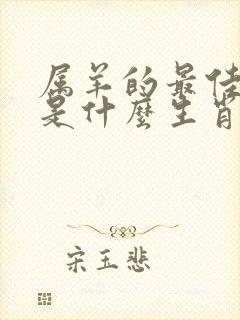 属羊的最佳
是什麽生肖
宋玉悲